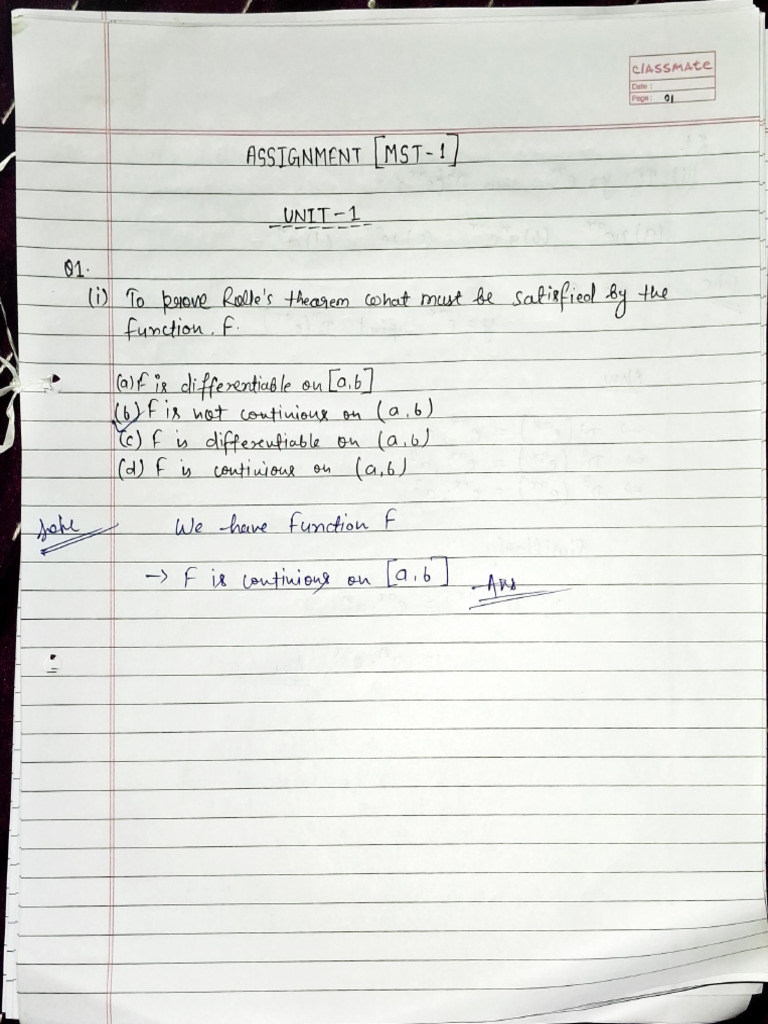 CLASSMATE
Date :
Page : 01
ASSIGNMENT [MST-1]
UNIT-1
Q1.
(i) To prove Rolle's thearem what must be satisfied by the
function. F.
(a) F is differentiable on [a,b]
(b) F is not continious on (a,b)
(c) F is differentiable on (a,b)
(d) F is continious on (a,b)
We have function F
-> F is continious on [a,b] -Ans